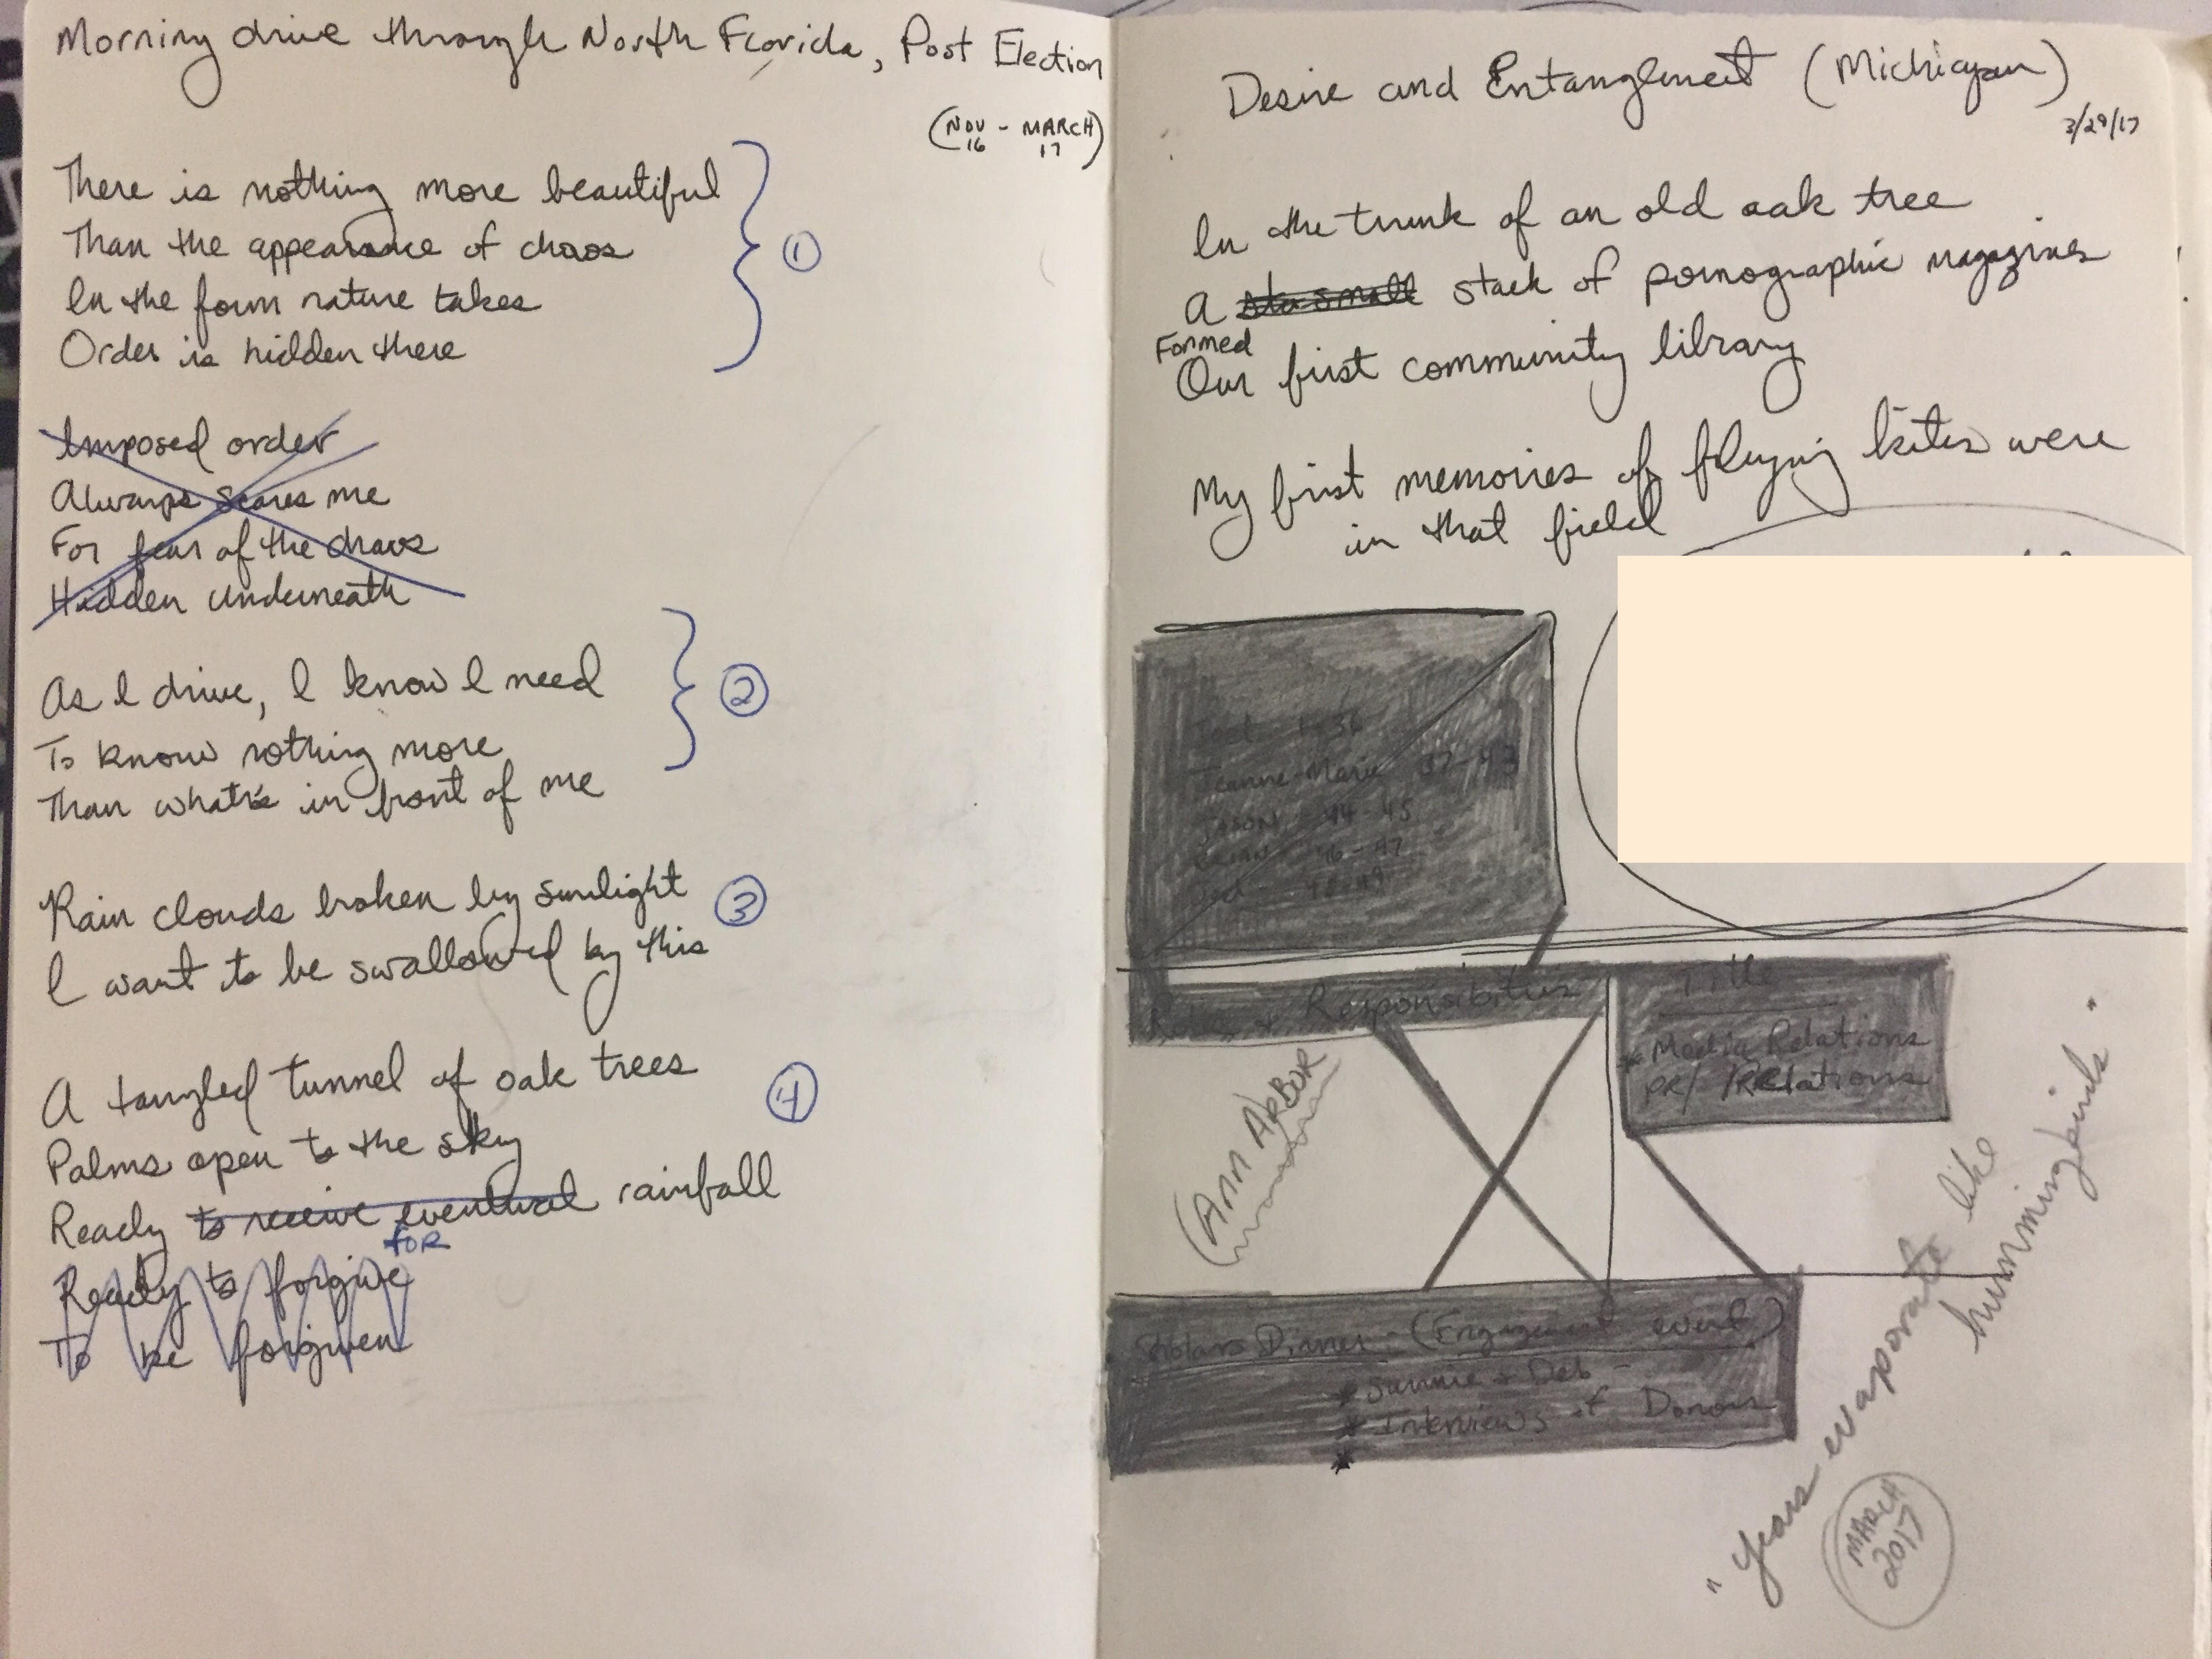 Morning drive through North Florida, Post Election
(NOV 16 - MARCH 17)
There is nothing more beautiful
Than the appearance of chaos
In the form nature takes
Order is hidden there
1
Imposed order
Always scares me
For fear of the chaos
Hidden underneath
As I drive, I know I need
To know nothing more
Than what's in front of me
2
Rain clouds broken by sunlight
I want to be swallowed by this
3
A tangled tunnel of oak trees
Palms open to the sky
Ready to receive eventual rainfall
for
Ready to forgive
To be forgiven
4
Desire and Entanglement (Michigan)
3/29/17
In the trunk of an old oak tree
A small stack of pornographic magazines
Formed
Our first community library
My first memories of flying kites were
in that field
1-36
Jeanne-Marie 37-43
JASON 44-45
BRIAN 46-47
Roles + Responsibilities
Title
* Media Relations
PR/ Relations
(ANN ARBOR
Scholars Dinner - (Engagement event)
* Sunnie + Deb -
* Interviews of Donors
*
"Years evaporate like
hummingbirds"
MARCH
2017